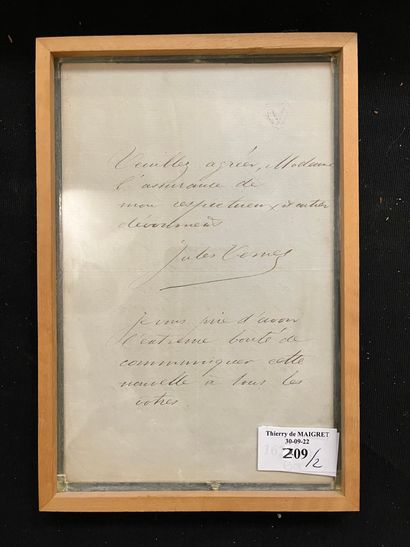 Veuillez agréer, Madame
l'assurance de
mon respectueux et entier
dévouement
Jules Verne
je vous prie d'avoir
l'extrême bonté de
communiquer cette
nouvelle à tous les
vôtres.
Thierry de MAIGRET
30-09-22
209/2